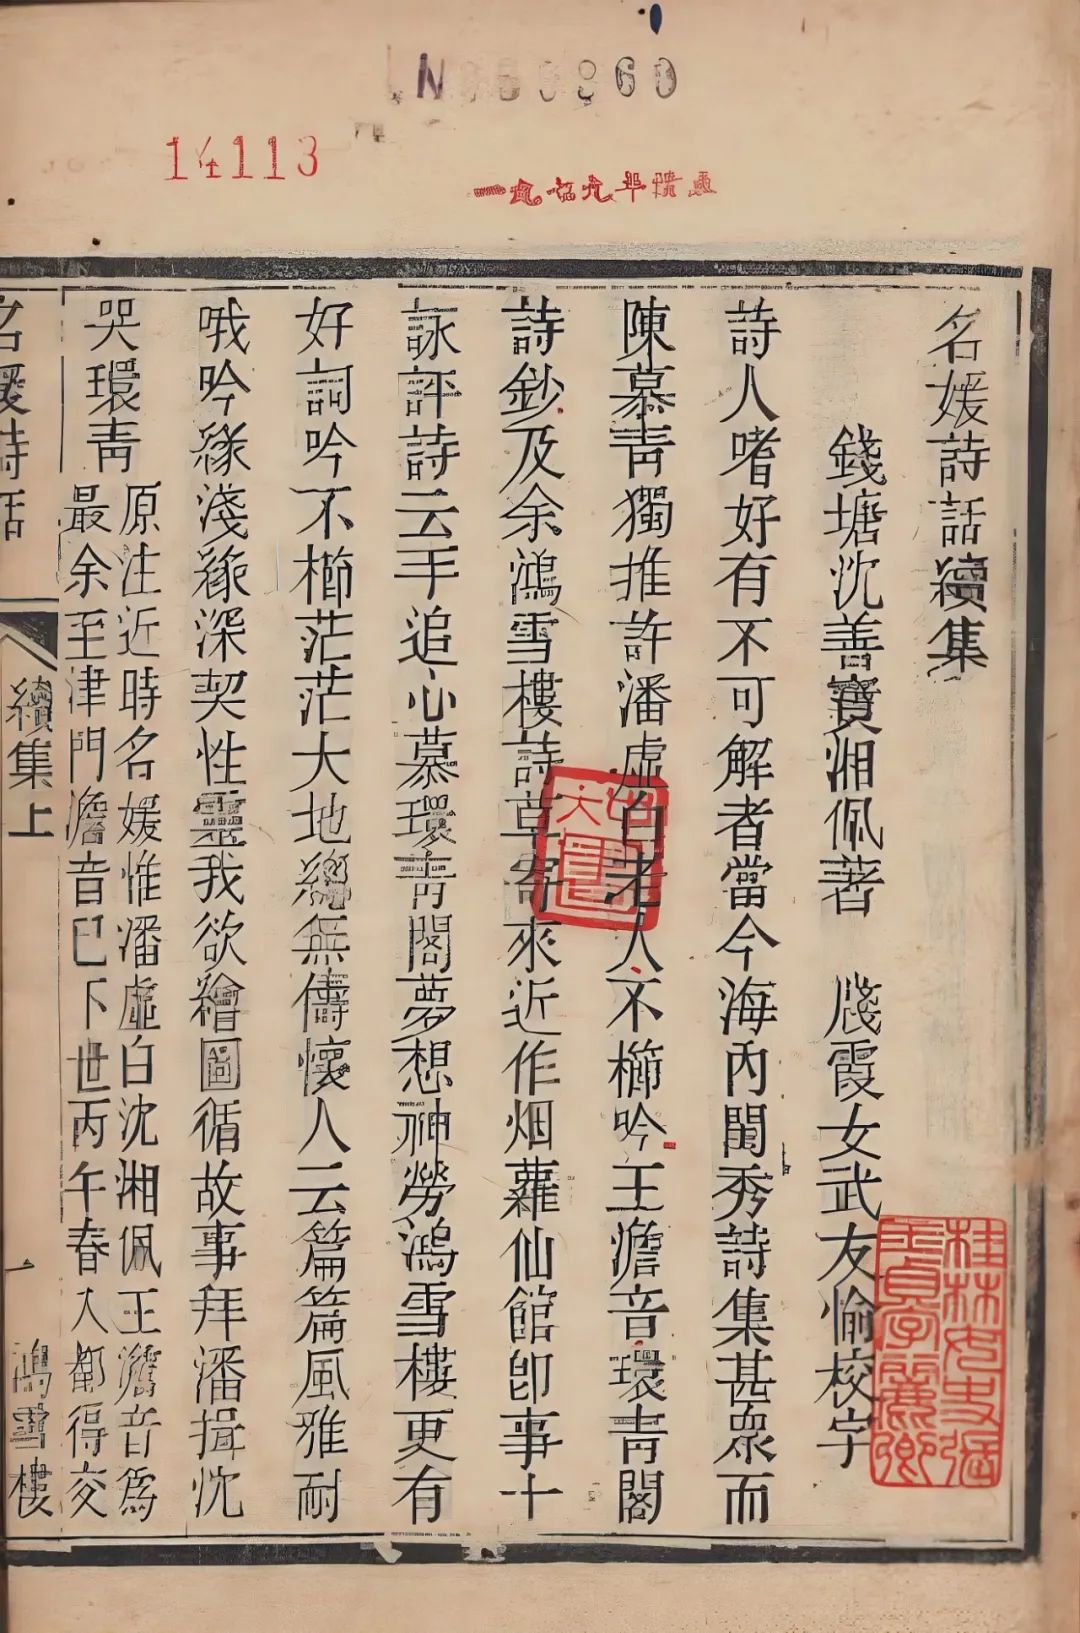 14113
名媛詩話續集
錢塘沈善寶湘佩著　殘霞女武友愉校字
詩人嗜好有不可解者當今海內閨秀詩集甚眾而
陳慕靑獨推許潘虛白老人不櫛吟王澹音環靑閣
詩鈔及余鴻雪樓詩草寄來近作烟蘿仙館卽事十
詠評詩云手追心慕環靑閣夢想神勞鴻雪樓更有
好詞吟不櫛茫茫大地總無儔懷人云篇篇風雅耐
哦吟緣淺緣深契性靈我欲繪圖循故事拜潘揖沈
哭環靑
原注近時名媛惟潘虛白沈湘佩王澹音爲
最余至津門澹音已下世丙午春入都得交
名媛詩話
續集上
一
鴻雪樓